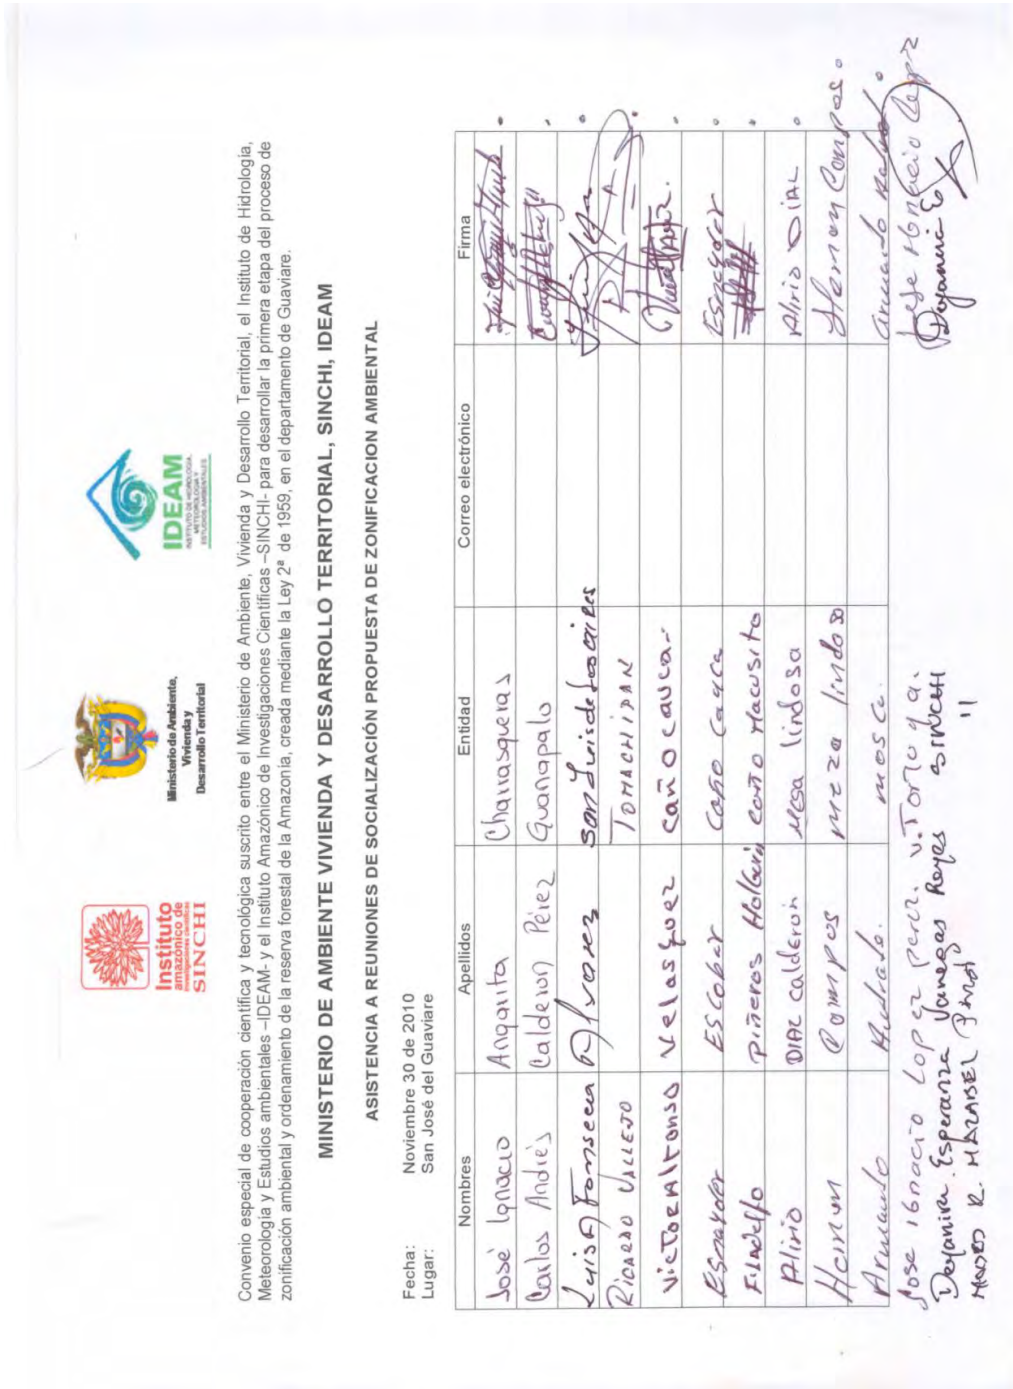 Instituto
amazónico de
investigaciones científicas
SINCHI
Ministerio de Ambiente,
Vivienda y
Desarrollo Territorial
IDEAM
INSTITUTO DE HIDROLOGÍA,
METEOROLOGÍA Y
ESTUDIOS AMBIENTALES
Convenio especial de cooperación científica y tecnológica suscrito entre el Ministerio de Ambiente, Vivienda y Desarrollo Territorial, el Instituto de Hidrología,
Meteorología y Estudios ambientales –IDEAM- y el Instituto Amazónico de Investigaciones Científicas –SINCHI- para desarrollar la primera etapa del proceso de
zonificación ambiental y ordenamiento de la reserva forestal de la Amazonia, creada mediante la Ley 2ª de 1959, en el departamento de Guaviare.
MINISTERIO DE AMBIENTE VIVIENDA Y DESARROLLO TERRITORIAL, SINCHI, IDEAM
ASISTENCIA A REUNIONES DE SOCIALIZACIÓN PROPUESTA DE ZONIFICACION AMBIENTAL
Fecha: Noviembre 30 de 2010
Lugar: San José del Guaviare
Nombres Apellidos Entidad Correo electrónico Firma
José Ignacio Angarita Charrasqueras
Carlos Andrés Calderon Pérez Guanapalo
Luis A Fonseca Alvarez San Luis de Los aires
Ricardo Vallejo TOMACHIPAN
Victor Alfonso Velasquez caño cauca
Esnayder Escobar Caño Cauca Esnayder
Filadelfo Piñeros Holguin caño Macusito
Alirio DIAZ Calderón Mesa lindosa Alirio DIAZ
Hernan Campos meza lindosa Hernan Campos
Armando mosco. Armando
Jose Ignacio Lopez perez. v. Tortuga. Jose Ignacio Lopez
Deyanira Esperanza Vanegas Reyes SINCHI Deyanira E
MARED R. MARABEL "